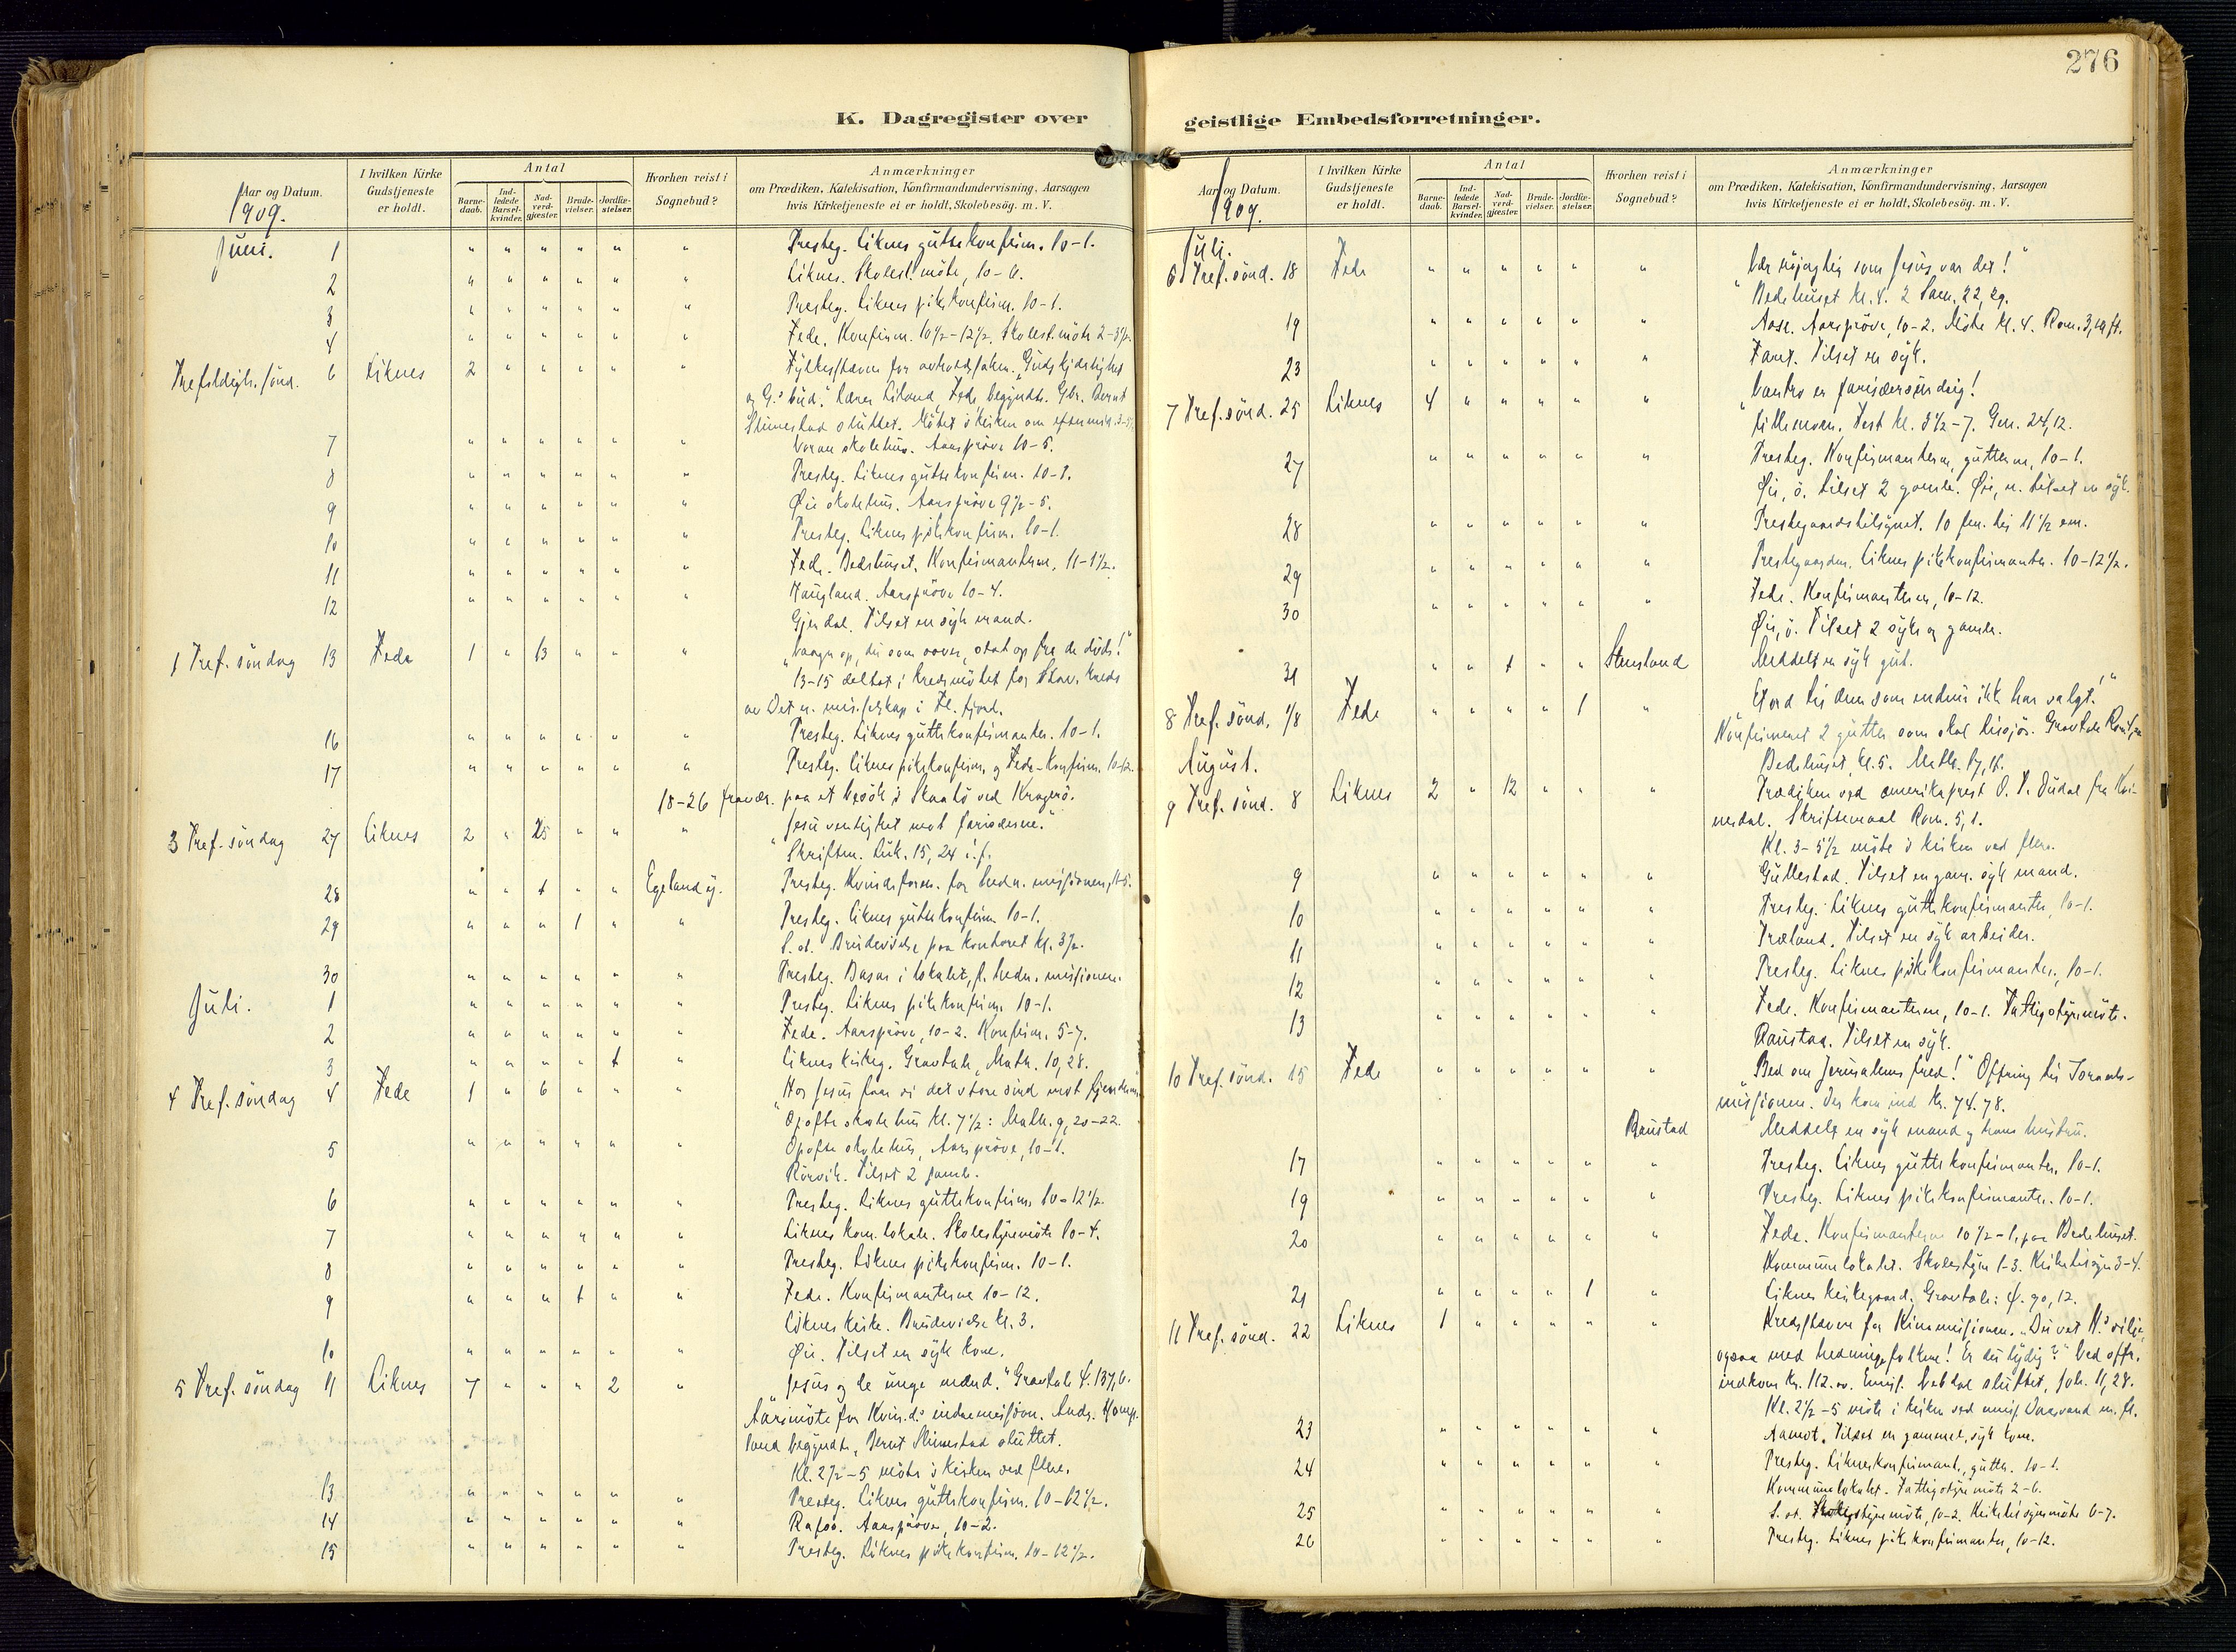 276
K. Dagregister over
geistlige Embedsforretninger.
Aar og Datum.
I hvilken Kirke Gudstjeneste er holdt.
Antal
Barne-daab.
Ind-ledede Barsel-kvinder.
Nad-verd-gjester.
Brude-vielser.
Jordfæ-stelser.
Hvorhen reist i Sognebud?
Anmærkninger
om Prædiken, Katekisation, Konfirmandundervisning, Aarsagen
hvis Kirketjeneste ei er holdt, Skolebesøg. m. V.
1909.
Juni. 1 " " " " " " Presteg. Liknes guttekonfirm. 10-1.
2 " " " " " " Liknes. Skolest. møte, 10-6.
3 " " " " " " Presteg. Liknes pikekonfirm. 10-1.
4 " " " " " " Fede. Konfirm. 10½-12½. Skolest. møte 2-3½.
Trefoldigh. sønd. 6 Liknes 2 " " " " " Fylkesstevne for avholdssaken. "Guds kjærlighet
og G.s bud." Lærer Liland, Fede begyndte. Gbr. Bernt
Slimestad sluttet. Møtet i kirken om efterm. 3-5½
7 " " " " " " skolehus. Aarsprøve 10-5.
8 " " " " " " Presteg. Liknes guttekonfirm. 10-1.
9 " " " " " " Øie skolehus. Aarsprøve 9½-5.
10 " " " " " " Presteg. Liknes pikekonfirm. 10-1.
11 " " " " " " Fede. Bedehuset. Konfirmanterne, 11-1½.
12 " " " " " " Haugland. Aarsprøve 10-4.
Gjerdal. Tilset en syk mand.
1 Tref. søndag 13 Fede 1 " 13 " " " "Vaagn op, du som sover, stat op fra de døde!"
13-15 deltat i kredsmøtet for Stav. kreds
av Det n. mis.selskap i Fl. fjord.
16 " " " " " " Presteg. Liknes guttekonfirmanter. 10-1.
17 " " " " " " Presteg. Liknes pikekonfirm. og Fede-konfirm. 10-12.
18-26 fravær. paa et besøk i Skaatø ved Kragerø.
3 Tref. søndag 27 Liknes 2 " 25 " " " "Jesu venlighet mot farisæerne."
Skriftem. Luk. 15, 24 i.f.
28 " " 1 " " Egeland y. Presteg. Kvindeforen. for hedn. missionen, 11-5.
29 " " " 1 " " Presteg. Liknes guttekonfirm 10-1.
S. st. Brudevielse paa kontoret kl. 3½.
30 " " " " " " Presteg. Basar i lokalet, f. hedn. missionen.
Juli. 1 " " " " " " Presteg. Liknes pikekonfirm. 10-1.
2 " " " " " " Fede. Aarsprøve, 10-2. Konfirm. 5-7.
3 " " " " 1 " Liknes kirkeg. Gravtale, Math. 10,28.
4 Tref. søndag 4 Fede 1 " 6 " " " "Hos Jesus faar vi det store sind mot fjenderne."
Opofte skolehus kl. 7½: Math. 9, 20-22.
5 " " " " " " Opofte skolehus, Aarsprøve, 10-1.
Rørvik. Tilset 2 gamle.
6 " " " " " " Presteg. Liknes guttekonfirm. 10-12½.
7 " " " " " " Liknes kom. lokale. Skolestyremøte 10-4.
8 " " " " " " Presteg. Liknes pikekonfirm. 10-1.
9 " " " 1 " " Fede. Konfirmanterne 10-12.
Liknes kirke. Brudevielse kl. 3.
10 " " " " " " Øie. Tilset en syk kone.
5 Tref. søndag 11 Liknes 7 " " " 2 " "Jesus og de unge mænd." Gravtale ψ. 137,6.
Aarsmøte for Kvin.d.s indremission. Andr.
land begyndte, Bernt Slimestad sluttet.
Kl. 2½-5 møte i kirken ved flere.
13 " " " " " " Presteg. Liknes guttekonfirm. 10-12½.
14 " " " " " " Rafos. Aarsprøve, 10-2.
15 " " " " " " Presteg. Liknes pikekonfirm. 10-12½.
Aar og Datum.
I hvilken Kirke Gudstjeneste er holdt.
Antal
Barne-daab.
Ind-ledede Barsel-kvinder.
Nad-verd-gjester.
Brude-vielser.
Jordfæ-stelser.
Hvorhen reist i Sognebud?
Anmærkninger
om Prædiken, Katekisation, Konfirmandundervisning, Aarsagen
hvis Kirketjeneste ei er holdt, Skolebesøg. m. V.
1909.
Juli.
6 Tref. sønd. 18 Fede " " " " " " "Vær nøjagtig som Jesus var det!"
Bedehuset kl. 4. 2 Sam. 22, 29.
19 " " " " " " Aase. Aarsprøve, 10-2. Møte kl. 4. Rom. 3, 19 ff.
23 " " " " " " Tilset en syk.
7 Tref. sønd. 25 Liknes 4 " " " " " "Vantro er farisæersyndig!
Fest kl. 3½-7. Gen. 24,12.
27 " " " " " " Presteg. Konfirmanterne, gutterne, 10-1.
Øie, ø. tilset 2 gamle. Øie, n. tilset en syk.
28 " " " " " " Prestegaardstilsynet. 10 fm. til 11½ em.
29 " " " " " " Prestegaarden. Liknes pikekonfirmanter. 10-12½.
30 " " " " " " Fede. Konfirmanterne, 10-12.
Øie, ø. Tilset 2 syke og gamle.
31 " " 1 " " Stensland Meddelt en syk gut.
8 Tref. sønd. 1/8 Fede " " " " 1 " Et ord til dem som endnu ikke har valgt!"
Konfirmeret 2 gutter som skal tilsjøs. Gravtale Rom.
August.
Bedehuset, kl. 5. Math. 17,16.
9 Tref. sønd. 8 Liknes 2 " 12 " " " Prædiken ved amerikaprest O. T. Dudal fra Kvi-
nesdal. Skriftemaal Rom. 5,1.
Kl. 3-5½ møte i kirken ved flere.
9 " " " " " " Gullestad. Tilset en gam. syk mand.
10 " " " " " " Presteg. Liknes guttekonfirmanter, 10-1.
11 " " " " " " Træland. Tilset en syk arbeider.
12 " " " " " " Presteg. Liknes pikekonfirmanter, 10-1.
13 " " " " " " Fede. Konfirmanterne, 10-1. Fattigstyremøte.
Raustad. Tilset en syk.
10 Tref. sønd. 15 Fede " " " " " " "Bed om Jerusalems fred!" Offring til Israels-
missionen. Der kom ind kr. 74.78.
Raustad Meddelt en syk mand og hans hustru.
17 " " " " " " Presteg. Liknes guttekonfirmanter, 10-1.
19 " " " " " " Presteg. Liknes pikekonfirmanter. 10-1.
20 " " " " " " Fede. Konfirmanterne 10½-1, paa Bedehuset.
Kommunelokalet. Skolestyre 1-3. Kirketilsyn 3-4.
21 " " " " 1 " Liknes kirkegaard. Gravtale: ψ. 90,12.
11 Tref. sønd. 22 Liknes 1 " " " " " Kredsstævne for Kinamissionen. "Du vet H.s vilje,
ogsaa med hedningefolkene! Er du lydig?" Ved offr.
indkom kr. 112.00. Emis. Vebdal sluttet, Joh. 11,28.
Kl. 2½-5 møte i kirken ved emis. m. fl.
23 " " " " " " Aamot. Tilset en gammel, syk kone.
24 " " " " " " Presteg. Likneskonfirmant., gutter. 10-1.
Kommunelokalet. Fattigstyremøte 2-6.
25 " " " " " " S. st. Skolestyremøte, 10-2. Kirketilsynsmøte 6-7.
26 " " " " " " Presteg. Liknes pikekonfirmanter, 10-12.